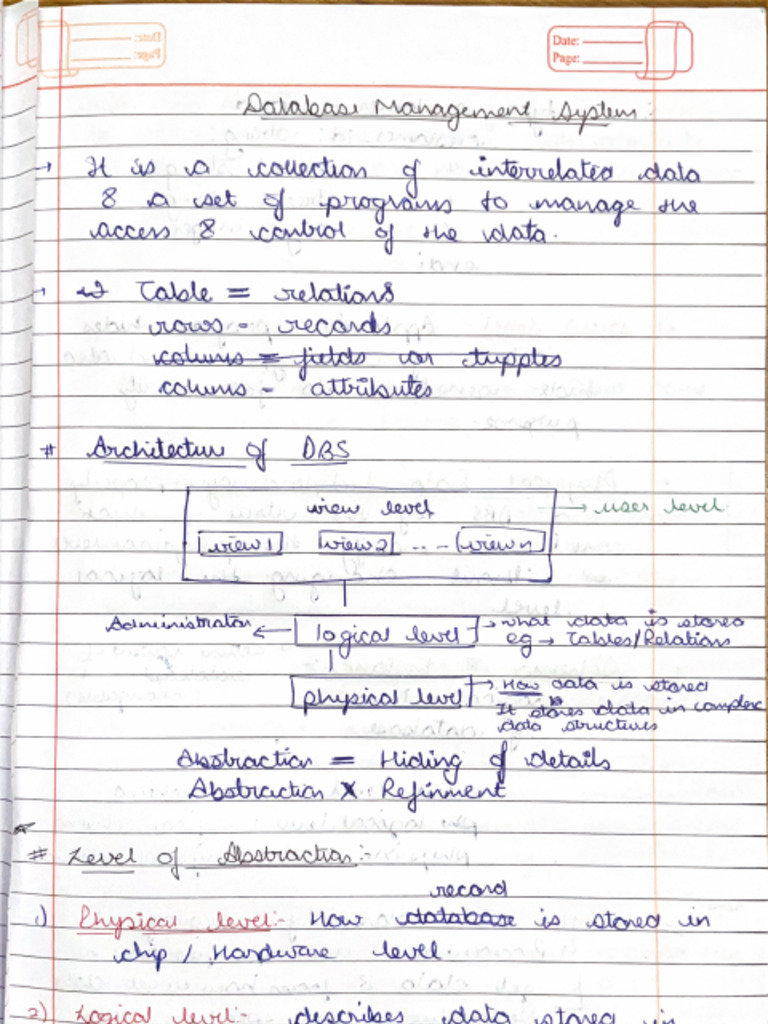 Date:
Page:
Database Management System:
→ It is a collection of interrelated data
& a set of programs to manage the
access & control of the data.
→ Table = relations
rows - records
colums = fields or tupples
colums - attributes
# Architecture of DBS
view level → user level
view 1 view 2 ... - view n
Administrator ← logical level → what data is stored
eg → Tables/Relations
physical level → How data is stored
It stores data in complex
data structures
Abstraction = Hiding of details
Abstraction X Refinment
# Level of Abstraction:-
record
1) Physical level:- How database is stored in
chip / Hardware level.
2) Logical level:- describes data stored in